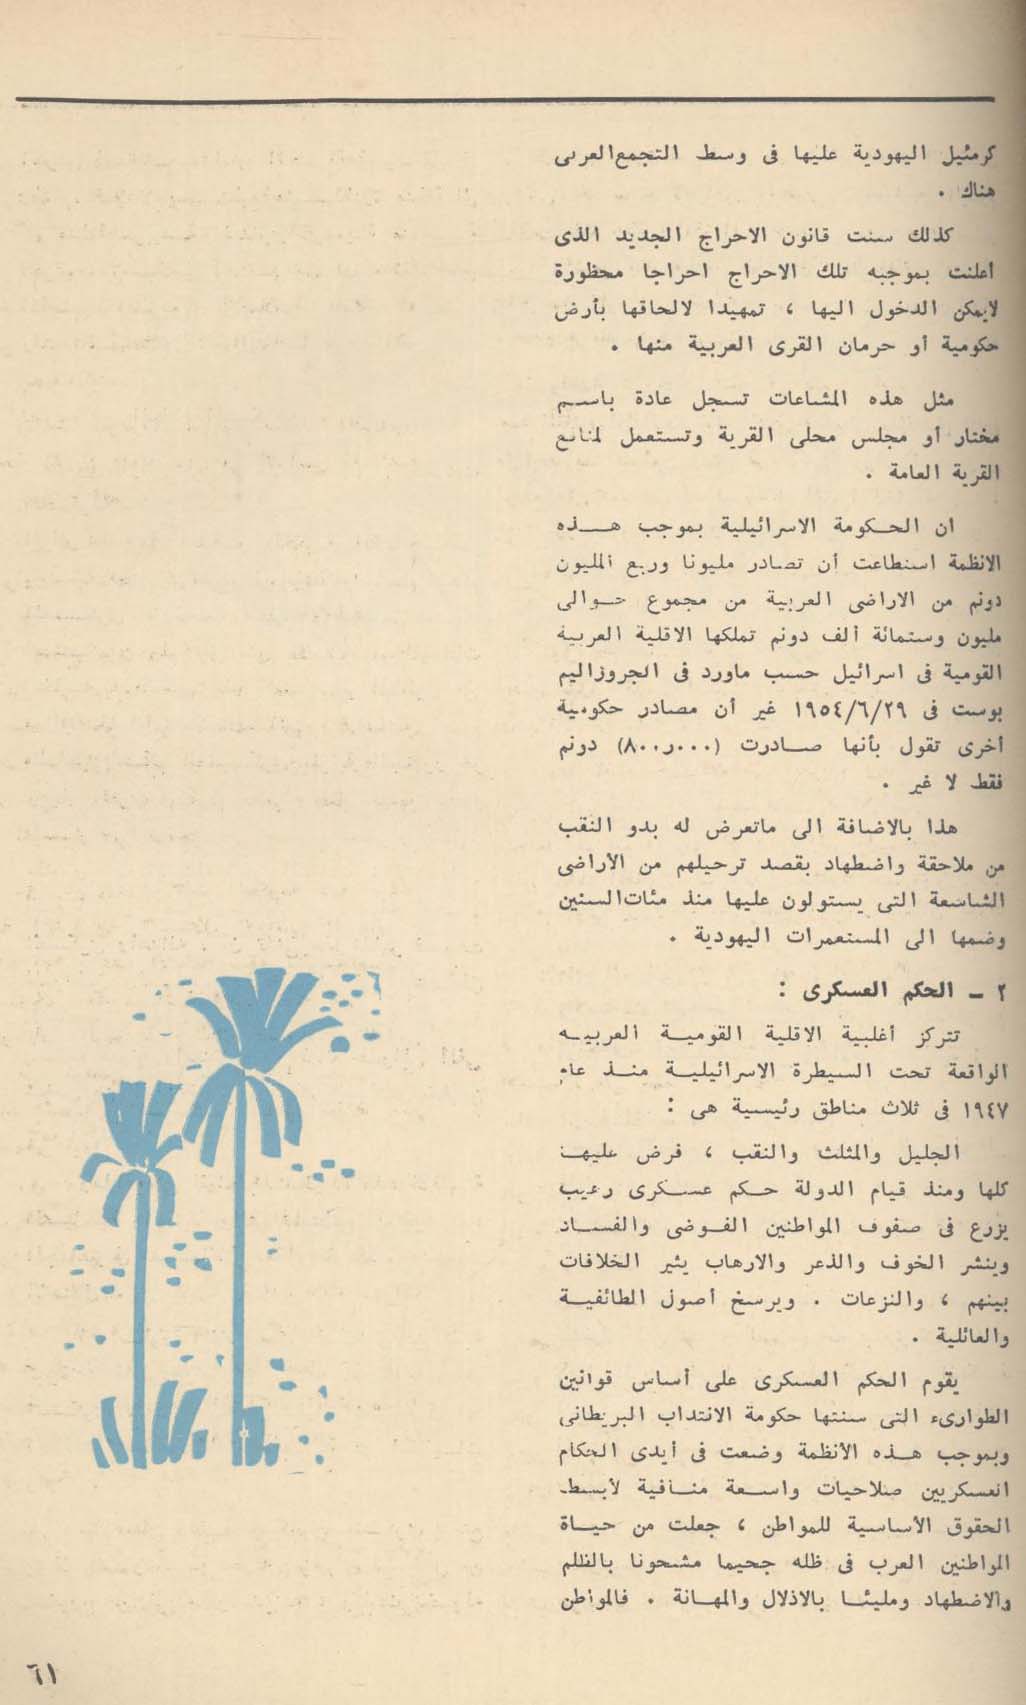 كرمئيل اليهودية عليها فى وسط التجمع العربى
هناك .
كذلك سنت قانون الاحراج الجديد الذى
أعلنت بموجبه تلك الاحراج احراجا محظورة
لايمكن الدخول اليها ، تمهيدا لالحاقها بأرض
حكومية أو حرمان القرى العربية منها .
مثل هذه المشاعات تسجل عادة باسم
مختار أو مجلس محلى القرية وتستعمل لمنافع
القرية العامة .
ان الحكومة الاسرائيلية بموجب هذه
الانظمة استطاعت أن تصادر مليونا وربع المليون
دونم من الاراضى العربية من مجموع حوالى
مليون وستمائة ألف دونم تملكها الاقلية العربية
القومية فى اسرائيل حسب ماورد فى الجروزاليم
بوست فى ١٩٥٤/٦/٢٩ غير أن مصادر حكومية
أخرى تقول بأنها صادرت (٨٠٠ر٠٠٠) دونم
فقط لا غير .
هذا بالاضافة الى ماتعرض له بدو النقب
من ملاحقة واضطهاد بقصد ترحيلهم من الأراضى
الشاسعة التى يستولون عليها منذ مئات السنين
وضمها الى المستعمرات اليهودية .
٢ - الحكم العسكرى :
تتركز أغلبية الاقلية القومية العربيه
الواقعة تحت السيطرة الاسرائيلية منذ عام
١٩٤٧ فى ثلاث مناطق رئيسية هى :
الجليل والمثلث والنقب ، فرض عليها
كلها ومنذ قيام الدولة حكم عسكرى رهيب
يزرع فى صفوف المواطنين الفوضى والفساد
وينشر الخوف والذعر والارهاب يثير الخلافات
بينهم ، والنزعات . ويرسخ أصول الطائفية
والعائلية .
يقوم الحكم العسكرى على أساس قوانين
الطوارىء التى سنتها حكومة الانتداب البريطانى
وبموجب هذه الأنظمة وضعت فى أيدى الحكام
العسكريين صلاحيات واسعة منافية لأبسط
الحقوق الأساسية للمواطن ، جعلت من حياة
المواطنين العرب فى ظله جحيما مشحونا بالظلم
والاضطهاد ومليئا بالاذلال والمهانة . فالمواطن
٦١